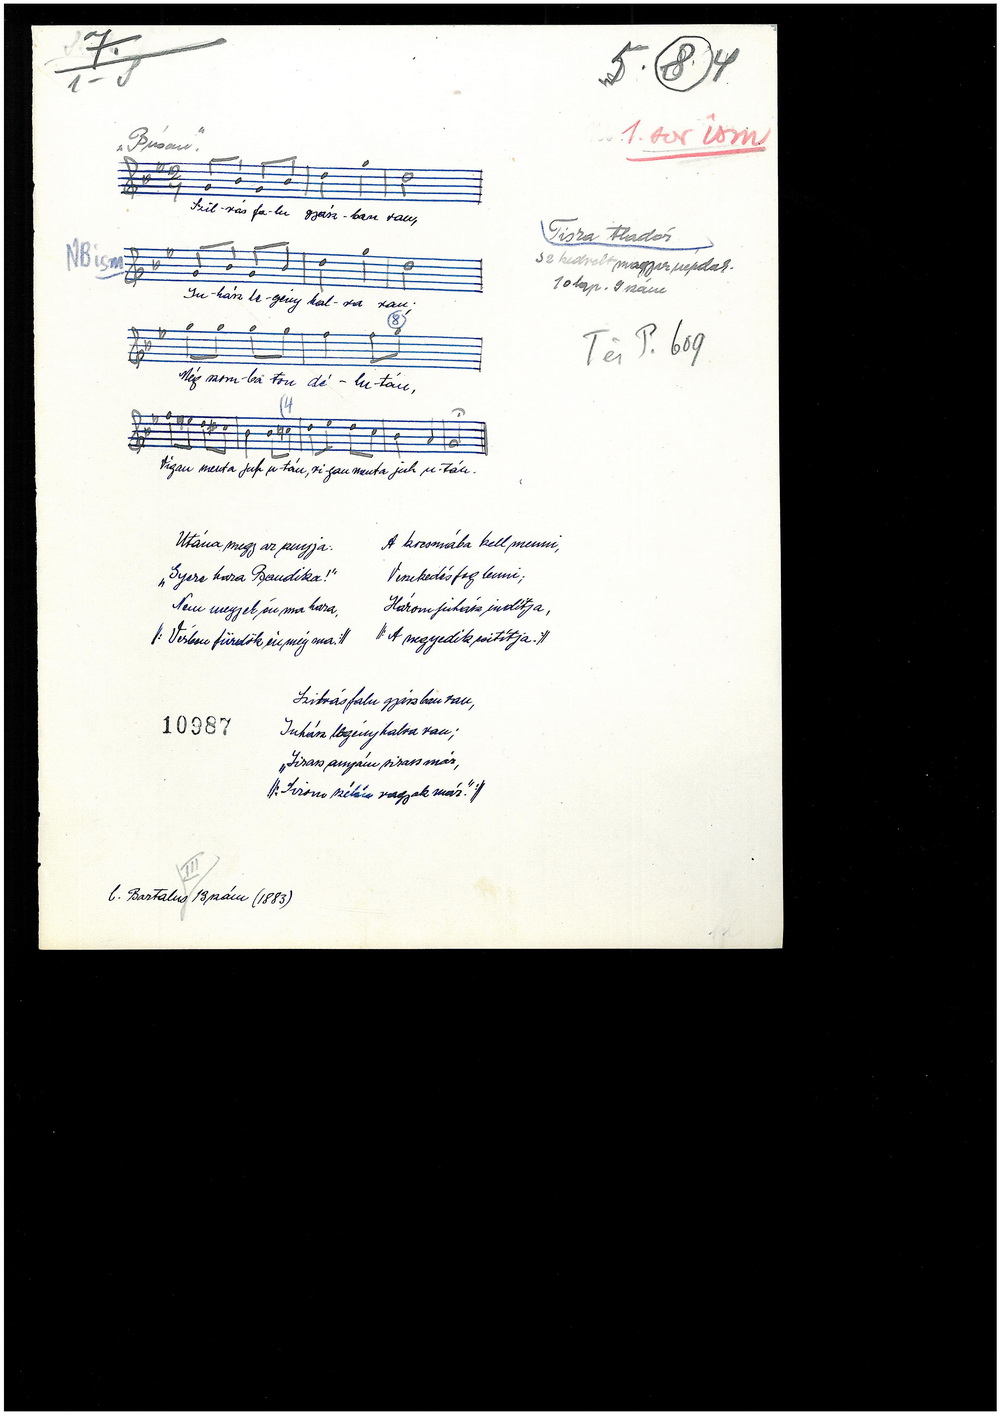 7.
1-8
5. 8. 4
1. sor ism
„Búsan."
Szil-vás fa-lu gyász-ban van,
NB ism
Ju-hász le-gény hal-va van;
8
Még szom-ba-ton dé-lu-tán,
(4
Vígan ment a juh u-tán, vi-gan ment a juh u-tán.
Tisza Aladár
32 kedvelt magyar népdal.
10 lap. 9 szám
Tér P. 609
Utána megy az anyja:
„Gyere haza Bandika!"
Nem megyek én ma haza,
||: Vérben fürdök én még ma. :||
A kocsmába kell menni,
Veszekedés fog lenni;
Három juhász indítja,
||: A negyedik :||
Szilvásfalu gyászban van,
Juhász legény halva van;
„Sirass anyám sirass már,
||: Sirom szélén vagyok már." :||
10987
III
l. Bartalus 13 szám (1883)